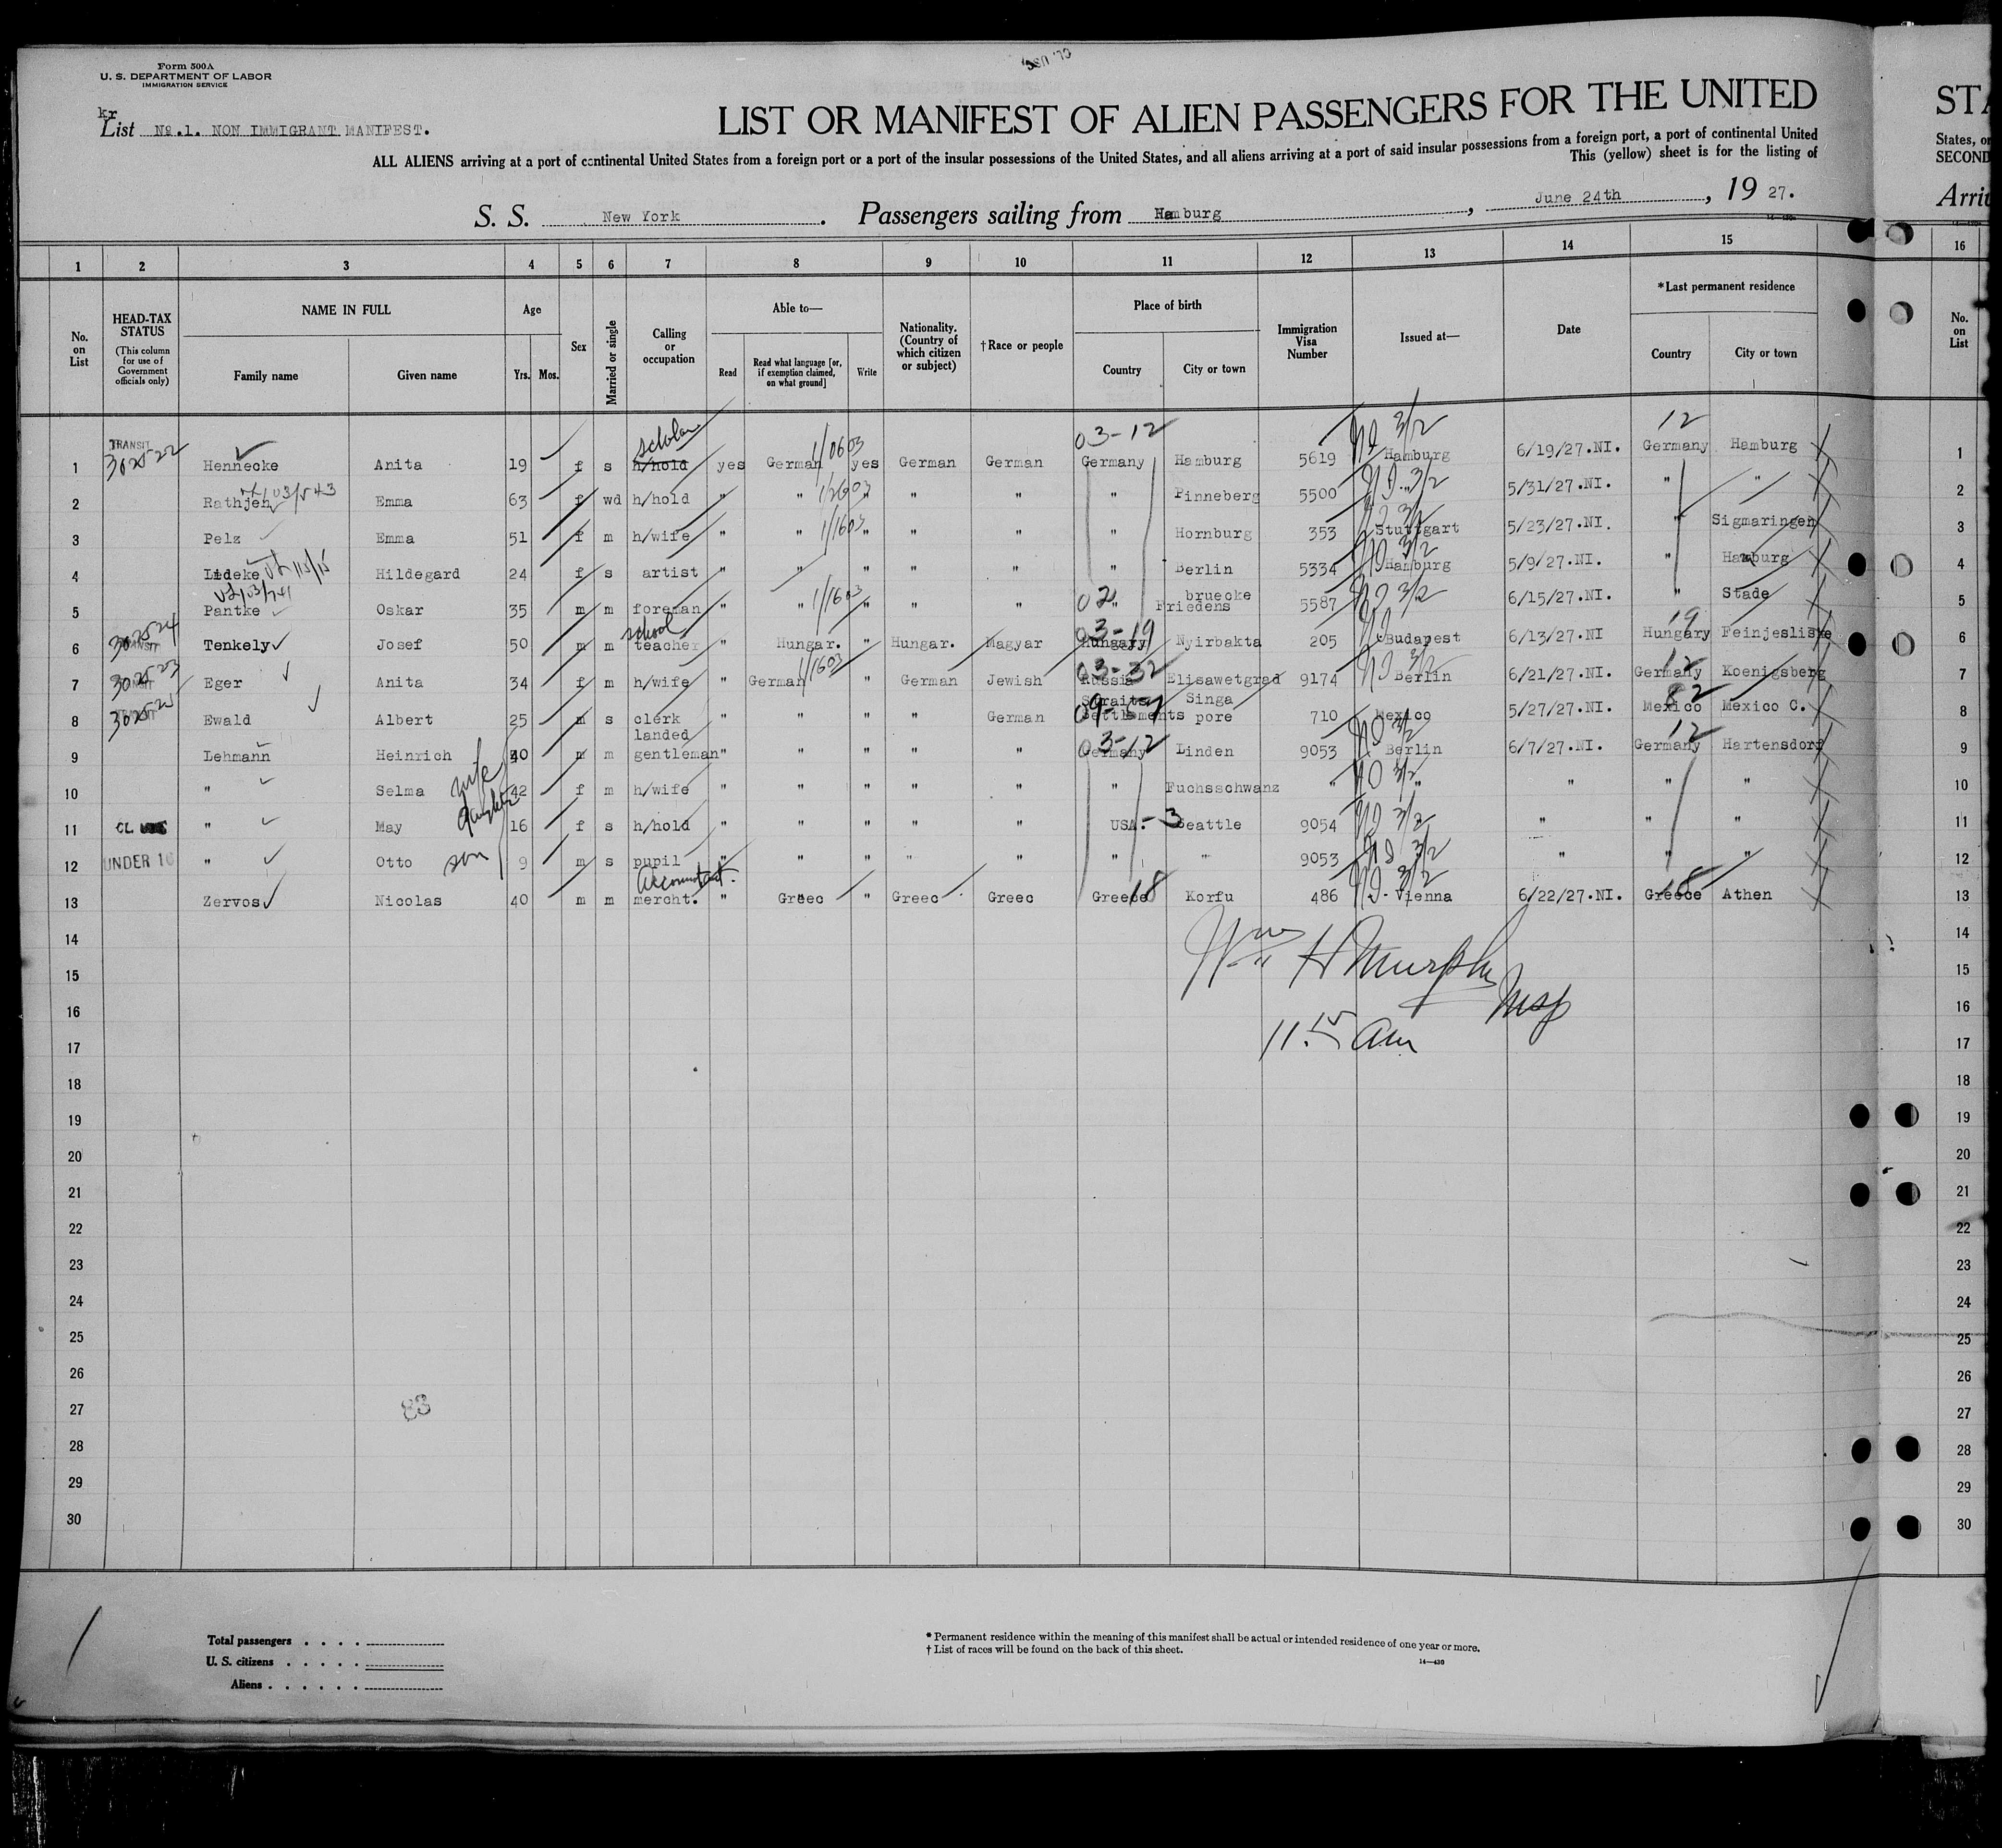 Form 500A
U. S. DEPARTMENT OF LABOR
IMMIGRATION SERVICE
kr
List No.1. NON IMMIGRANT MANIFEST.
LIST OR MANIFEST OF ALIEN PASSENGERS FOR THE UNITED
STA
ALL ALIENS arriving at a port of continental United States from a foreign port or a port of the insular possessions of the United States, and all aliens arriving at a port of said insular possessions from a foreign port, a port of continental United
States, or
This (yellow) sheet is for the listing of
SECOND
S. S. New York. Passengers sailing from Hamburg, June 24th, 19 27.
Arri
1 2 3 4 5 6 7 8 9 10 11 12 13 14 15 16
No. on List
HEAD-TAX STATUS
(This column for use of Government officials only)
NAME IN FULL
Family name Given name
Age
Yrs. Mos.
Sex
Married or single
Calling or occupation
Able to—
Read Read what language [or, if exemption claimed, on what ground] Write
Nationality. (Country of which citizen or subject)
†Race or people
Place of birth
Country City or town
Immigration Visa Number
Issued at—
Date
*Last permanent residence
Country City or town
No. on List
TRANSIT scholar 1/0603 03-12 3/2 12
1 302522 Hennecke Anita 19 f s h/hold yes German yes German German Germany Hamburg 5619 Hamburg 6/19/27.NI. Germany Hamburg 1
2 Rathjen Emma 63 f wd h/hold " " " " " " Pinneberg 5500 " 5/31/27.NI. " " 2
3 Pelz Emma 51 f m h/wife " " 1/1603 " " " " Hornburg 353 Stuttgart 5/23/27.NI. " Sigmaringen 3
4 Lideke Hildegard 24 f s artist " " " " " " Berlin 5334 Hamburg 5/9/27.NI. " Hamburg 4
5 Pantke Oskar 35 m m foreman " " 1/1603 " " " 02 " Friedens bruecke 5587 " 6/15/27.NI. " Stade 5
school 03-19 19
6 302524 TRANSIT Tenkely Josef 50 m m teacher " Hungar. " Hungar. Magyar Hungary Nyirbakta 205 Budapest 6/13/27.NI Hungary 6
1/1603 03-32 12
7 302523 Eger Anita 34 f m h/wife " German " German Jewish Russia Elisawetgrad 9174 Berlin 6/21/27.NI. Germany Koenigsberg 7
8 Ewald Albert 25 m s clerk " " " " German Straits Settlements Singa pore 710 Mexico 5/27/27.NI. Mexico Mexico C. 8
03-12 12
9 Lehmann Heinrich 40 m m landed gentleman " " " " " Germany Linden 9053 Berlin 6/7/27.NI. Germany Hartensdorf 9
wife
10 " Selma 42 f m h/wife " " " " " " Fuchsschwanz " " " " " 10
daughter
11 " May 16 f s h/hold " " " " " USA. Seattle 9054 " " " 11
12 UNDER 16 " Otto son 9 m s pupil " " " " " " " 9053 " " " 12
Accountant. 18
13 Zervos Nicolas 40 m m mercht. " Greec " Greec Greec Greece Korfu 486 Vienna 6/22/27.NI. Greece Athen 13
14 14
15 Wm H Murphy 15
16 Insp 16
17 11.15 am 17
18 18
19 19
20 20
21 21
22 22
23 23
24 24
25 25
26 26
27 83 27
28 28
29 29
30 30
Total passengers
U. S. citizens
Aliens
* Permanent residence within the meaning of this manifest shall be actual or intended residence of one year or more.
† List of races will be found on the back of this sheet.
14—430